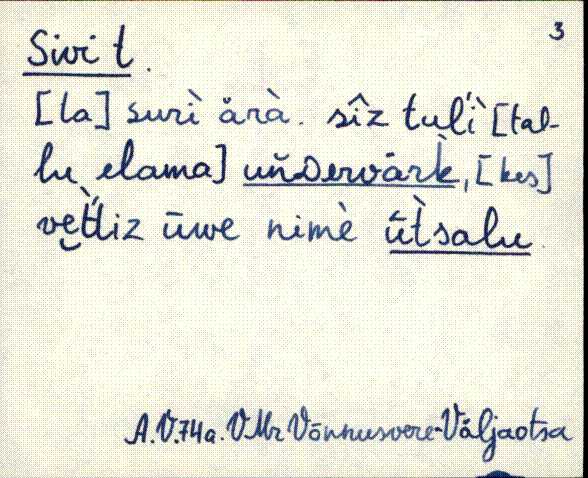 3
Sivi t.
[ta] surì̬ ărà. sîz tuĺì [tal-
lu elama] uňdervärk, [kes]
vettiz ūwe nimè ūtsalu.
A.V.74a. VMr Võnnusvere-Väljaotsa